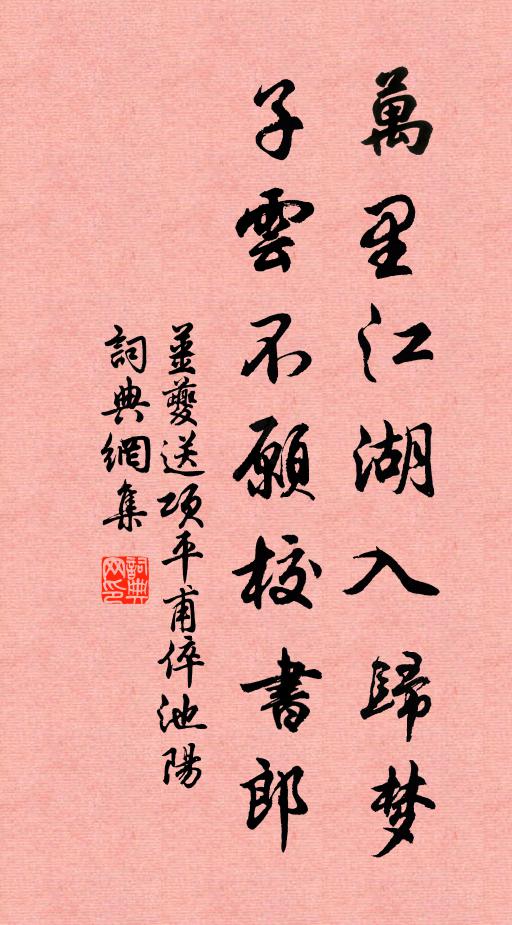 萬里江湖入歸梦
子雲不願校書郎
姜夔送項平甫倅池陽
詞典網集
詞典网印